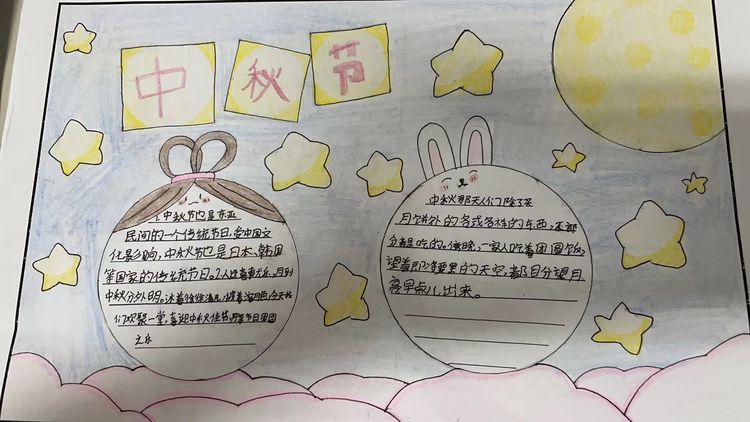 中秋节
中秋节也是东亚
民间的一个传统节日,受中国文
化影响,中秋节也是日本、韩国
等国家的传统节日。人逢喜事尤乐,月到
中秋分外明。沐着徐徐清风,披着
们欢聚一堂,喜迎中秋佳节,共享节日团圆
之乐
中秋那天人们除了买
月饼外的各式各样的东西,大部
分都是吃的。傍晚,一家人吃着团圆饭,
望着的天空,都自分望月
亮早点儿出来。